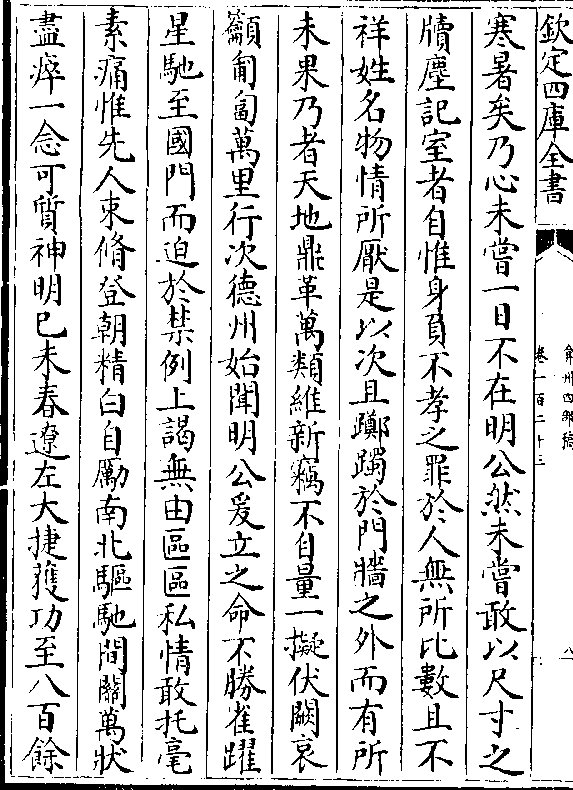 欽定四庫全書
弇州四部稿
卷一百二十三
八
寒暑矣乃心未嘗一日不在明公然未嘗敢以尺寸之
牘塵記室者自惟身負不孝之罪於人無所比數且不
祥姓名物情所厭是以次且躑躅於門牆之外而有所
未果乃者天地鼎革萬類維新竊不自量一擬伏闕哀
籲匍匐萬里行次德州始聞明公爰立之命不勝雀躍
星馳至國門而迫於禁例上謁無由區區私情敢托毫
素痛惟先人束脩登朝精白自勵南北驅馳間關萬狀
盡瘁一念可質神明已未春遼左大捷獲功至八百餘